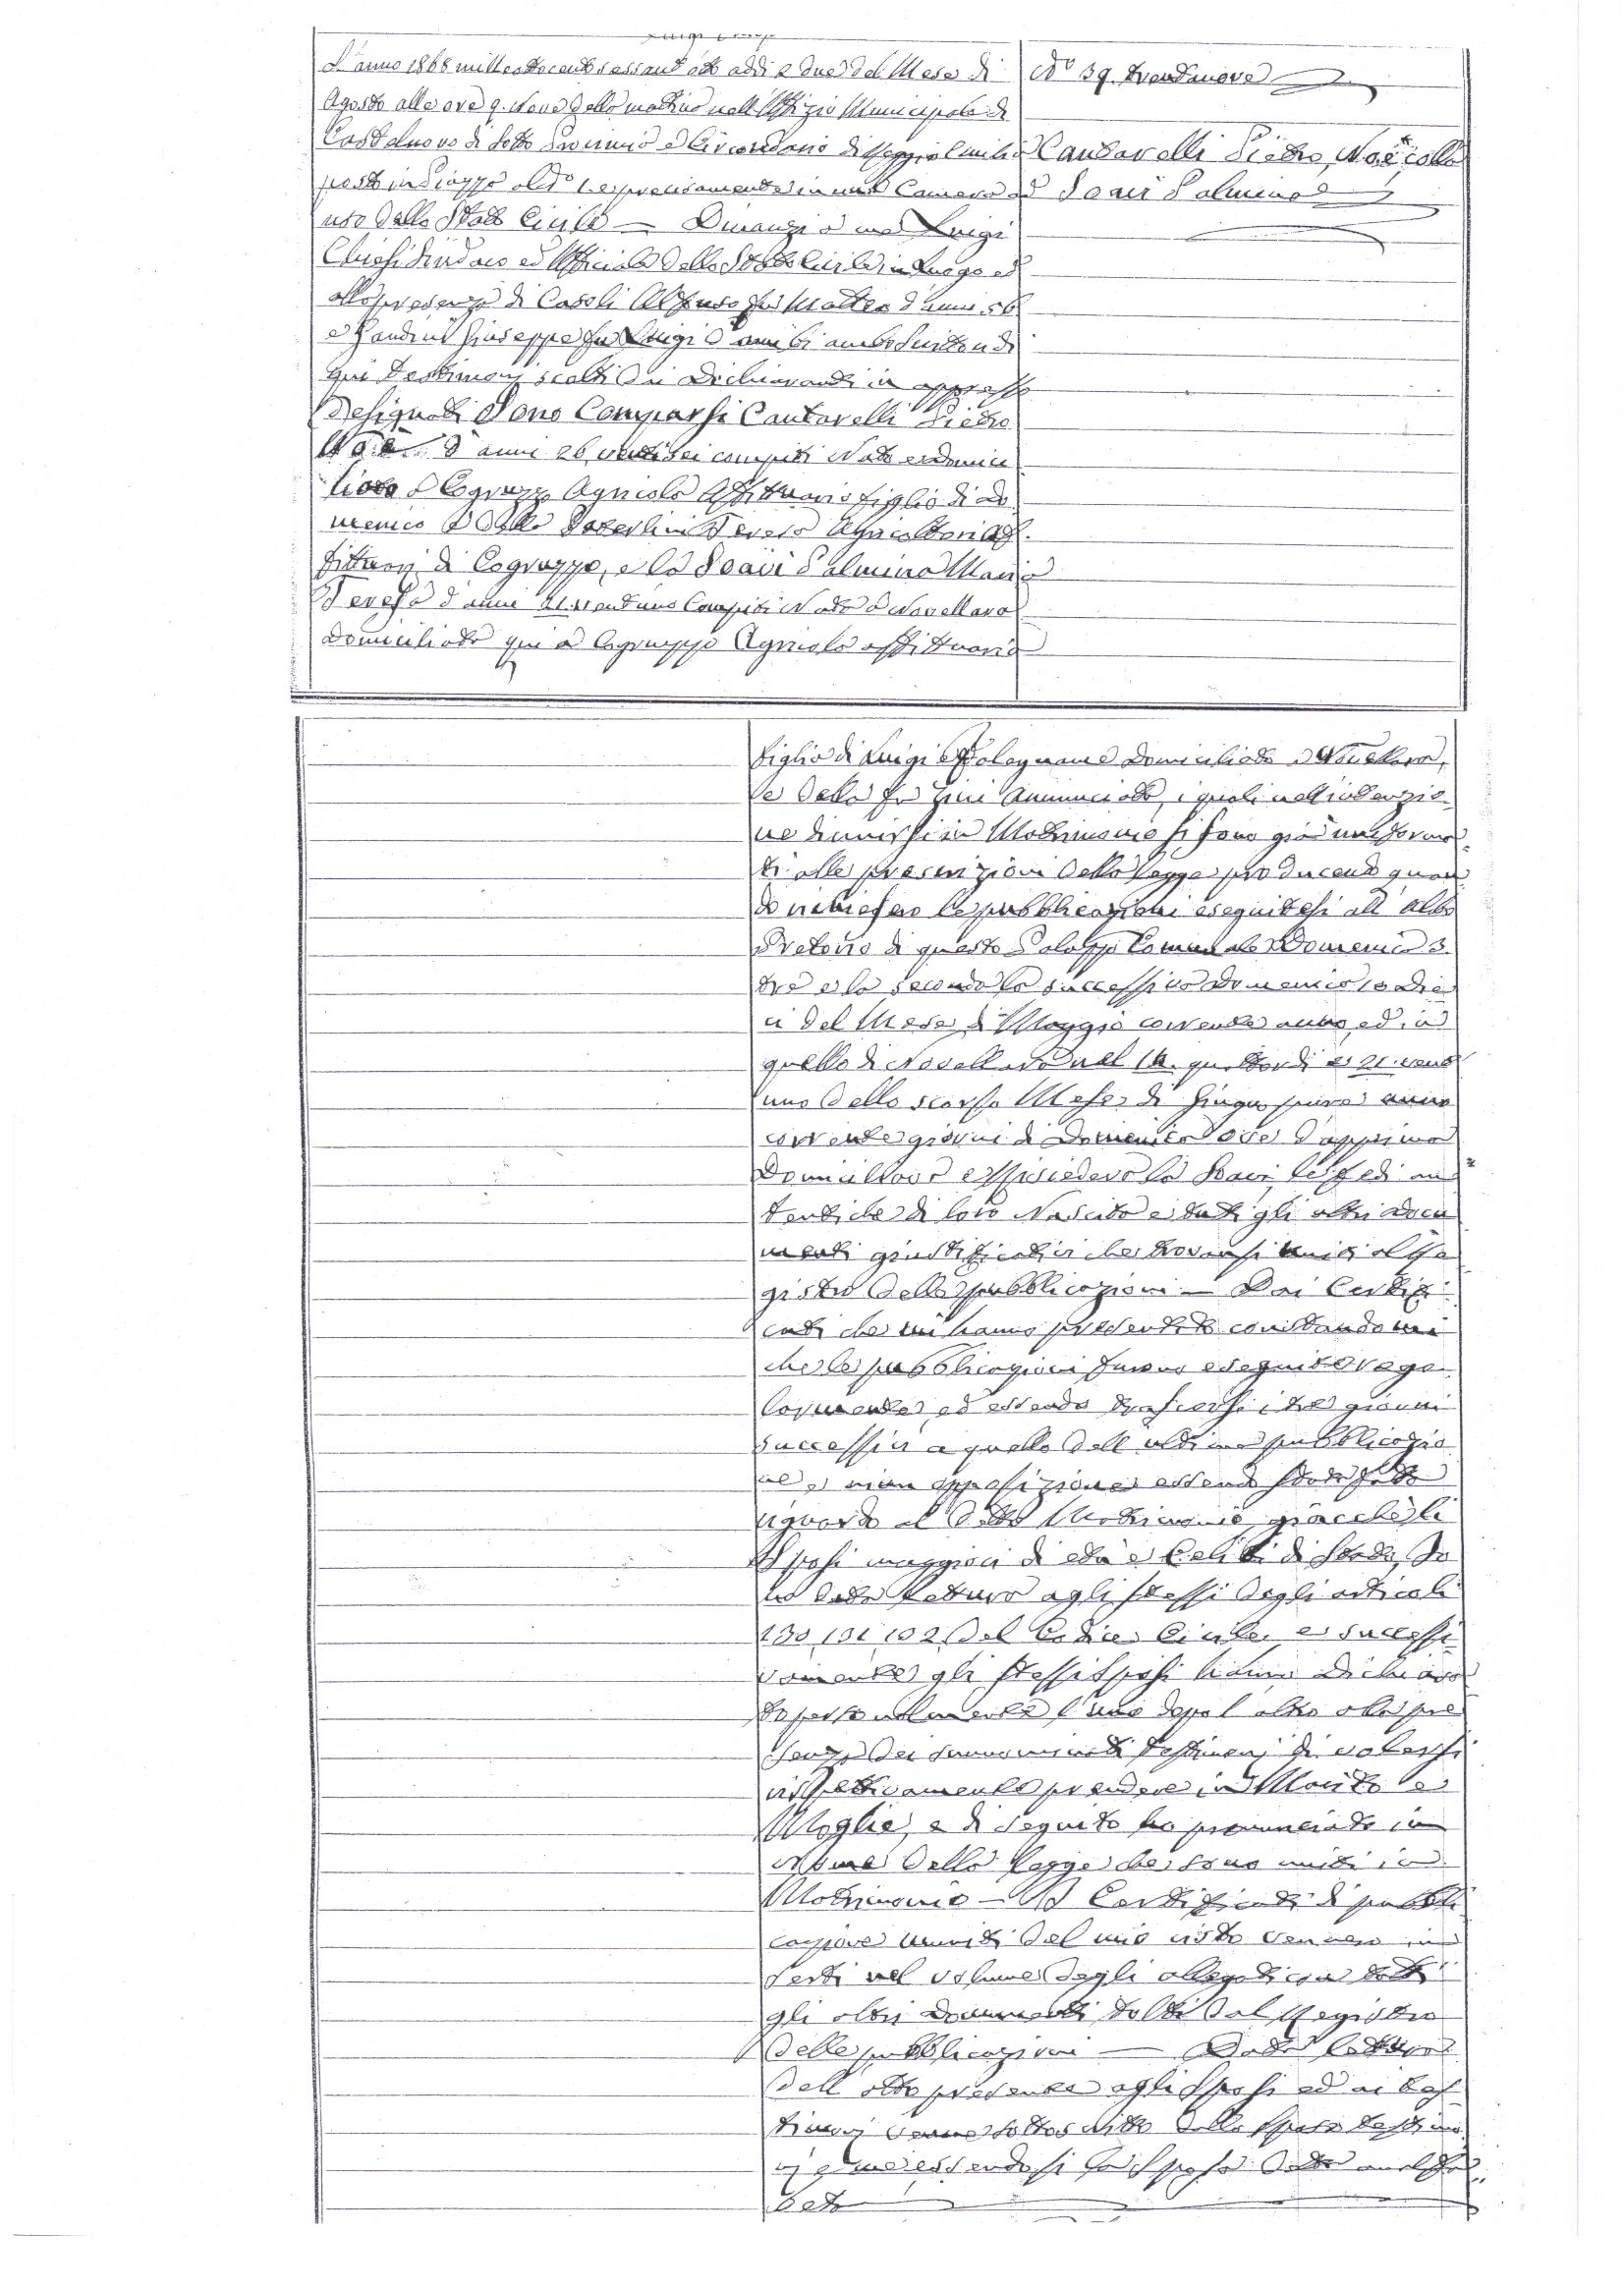 L'anno 1868 milleottocentosessantotto addì 2 due del Mese di
Agosto alle ore 9. Nove della mattina nell'Uffizio Municipale di
Castelnuovo di Sotto Provincia e Circondario di Reggio Emilia
posto in Piazza al N° 1 e precisamente in una Camera ad
uso dello Stato Civile — Dinanzi a me Luigi
Chiesi Sindaco ed Ufficiale dello Stato Civile in Luogo ed
alla presenza di Casoli Alfonso fu Matteo d'anni 56
e Giuseppe fu Luigi d'anni ambo di
qui Testimonj scelti dai Dichiaranti in appresso
designati Sono Comparsi Cantarelli Pietro
Noè d'anni 26 ventisei compiti Nato e domici
liato a Cogruzzo Agricola Affittuario figlio di Do
menico e della Teresa Agricoltori Af
fittuarj di Cogruzzo, e la Soavi Palmina Maria
Teresa d'anni 21 ventuno Compiti Nata a Novellara
domiciliata qui a Cogruzzo Agricola affittuaria
N° 39. trentanove
Cantarelli Pietro, Noè colla
Soavi Palmina
figlia di Luigi domiciliato a Novellara,
e della fu Annunciata, i quali nell'intenzio
ne di unirsi in Matrimonio si sono già uniforma
ti alle prescrizioni della Legge producendo quan
do richiesero le pubblicazioni eseguitesi all'albo
Pretorio di questo Palazzo Comunale Domenica 3
tre e la seconda la successiva Domenica 10 die
ci del Mese di Maggio corrente anno, ed in
quello di Novellara nel 14. quattordici e 21. vent
uno dello scorso Mese di Giugno pure anno
corrente giorni di Domenica ove dapprima
Domiciliava e risiedeva la Soavi, le fedi au
tentiche di loro Nascita e tutti gli altri docu
menti giustificativi che trovansi uniti al Re
gistro delle pubblicazioni — Dai Certifi
cati che mi hanno presentato constandomi
che le pubblicazioni furono eseguite rego
larmente, ed essendo trascorsi i tre giorni
successivi a quello dell'ultima pubblicazio
ne, e niuna opposizione essendo stata fatta
riguardo al detto Matrimonio, giacchè li
Sposi maggiori di età e Celibi di Stato, Io
ho dato lettura agli stessi degli articoli
130 131 132 del Codice Civile, e successi
vamente gli stessi Sposi hanno dichiara
to personalmente l'uno dopo l'altro alla pre
senza dei summenominati testimonj di volersi
rispettivamente prendere in Marito e
Moglie, e di seguito ho pronunciato in
Nome della Legge che sono uniti in
Matrimonio — I Certificati di pubbli
cazione muniti del mio visto vennero in
serti nel volume degli allegati con tutti
gli altri documenti tolti dal Registro
delle pubblicazioni — Data lettura
dell'atto presente agli Sposi ed ai tes
timonj venne sottoscritto dallo Sposo testimo
nj e me essendosi la Sposa detta analfa
beta